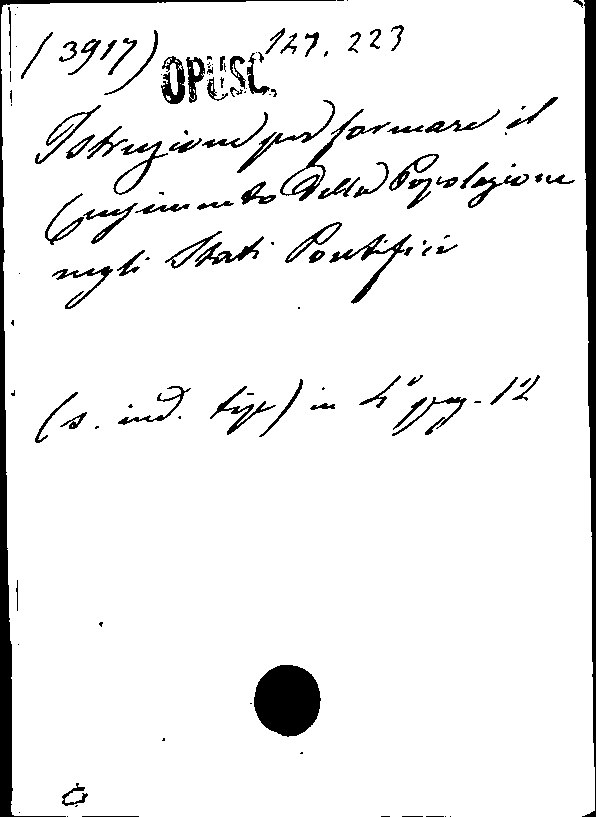 (3917) OPUSC. 127. 223
Istruzione per formare il
Censimento della Popolazione
negli Stati Pontifici
(s. ind. tip) in 4° pag. 12